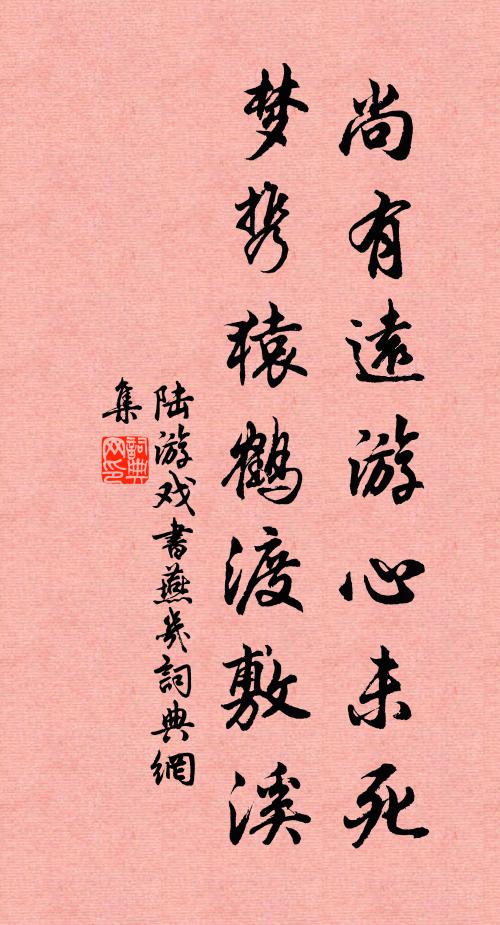 尚有遠游心未死
梦携猿鹤渡敷溪
陆游戏书燕几詞典網
集
詞典
网印